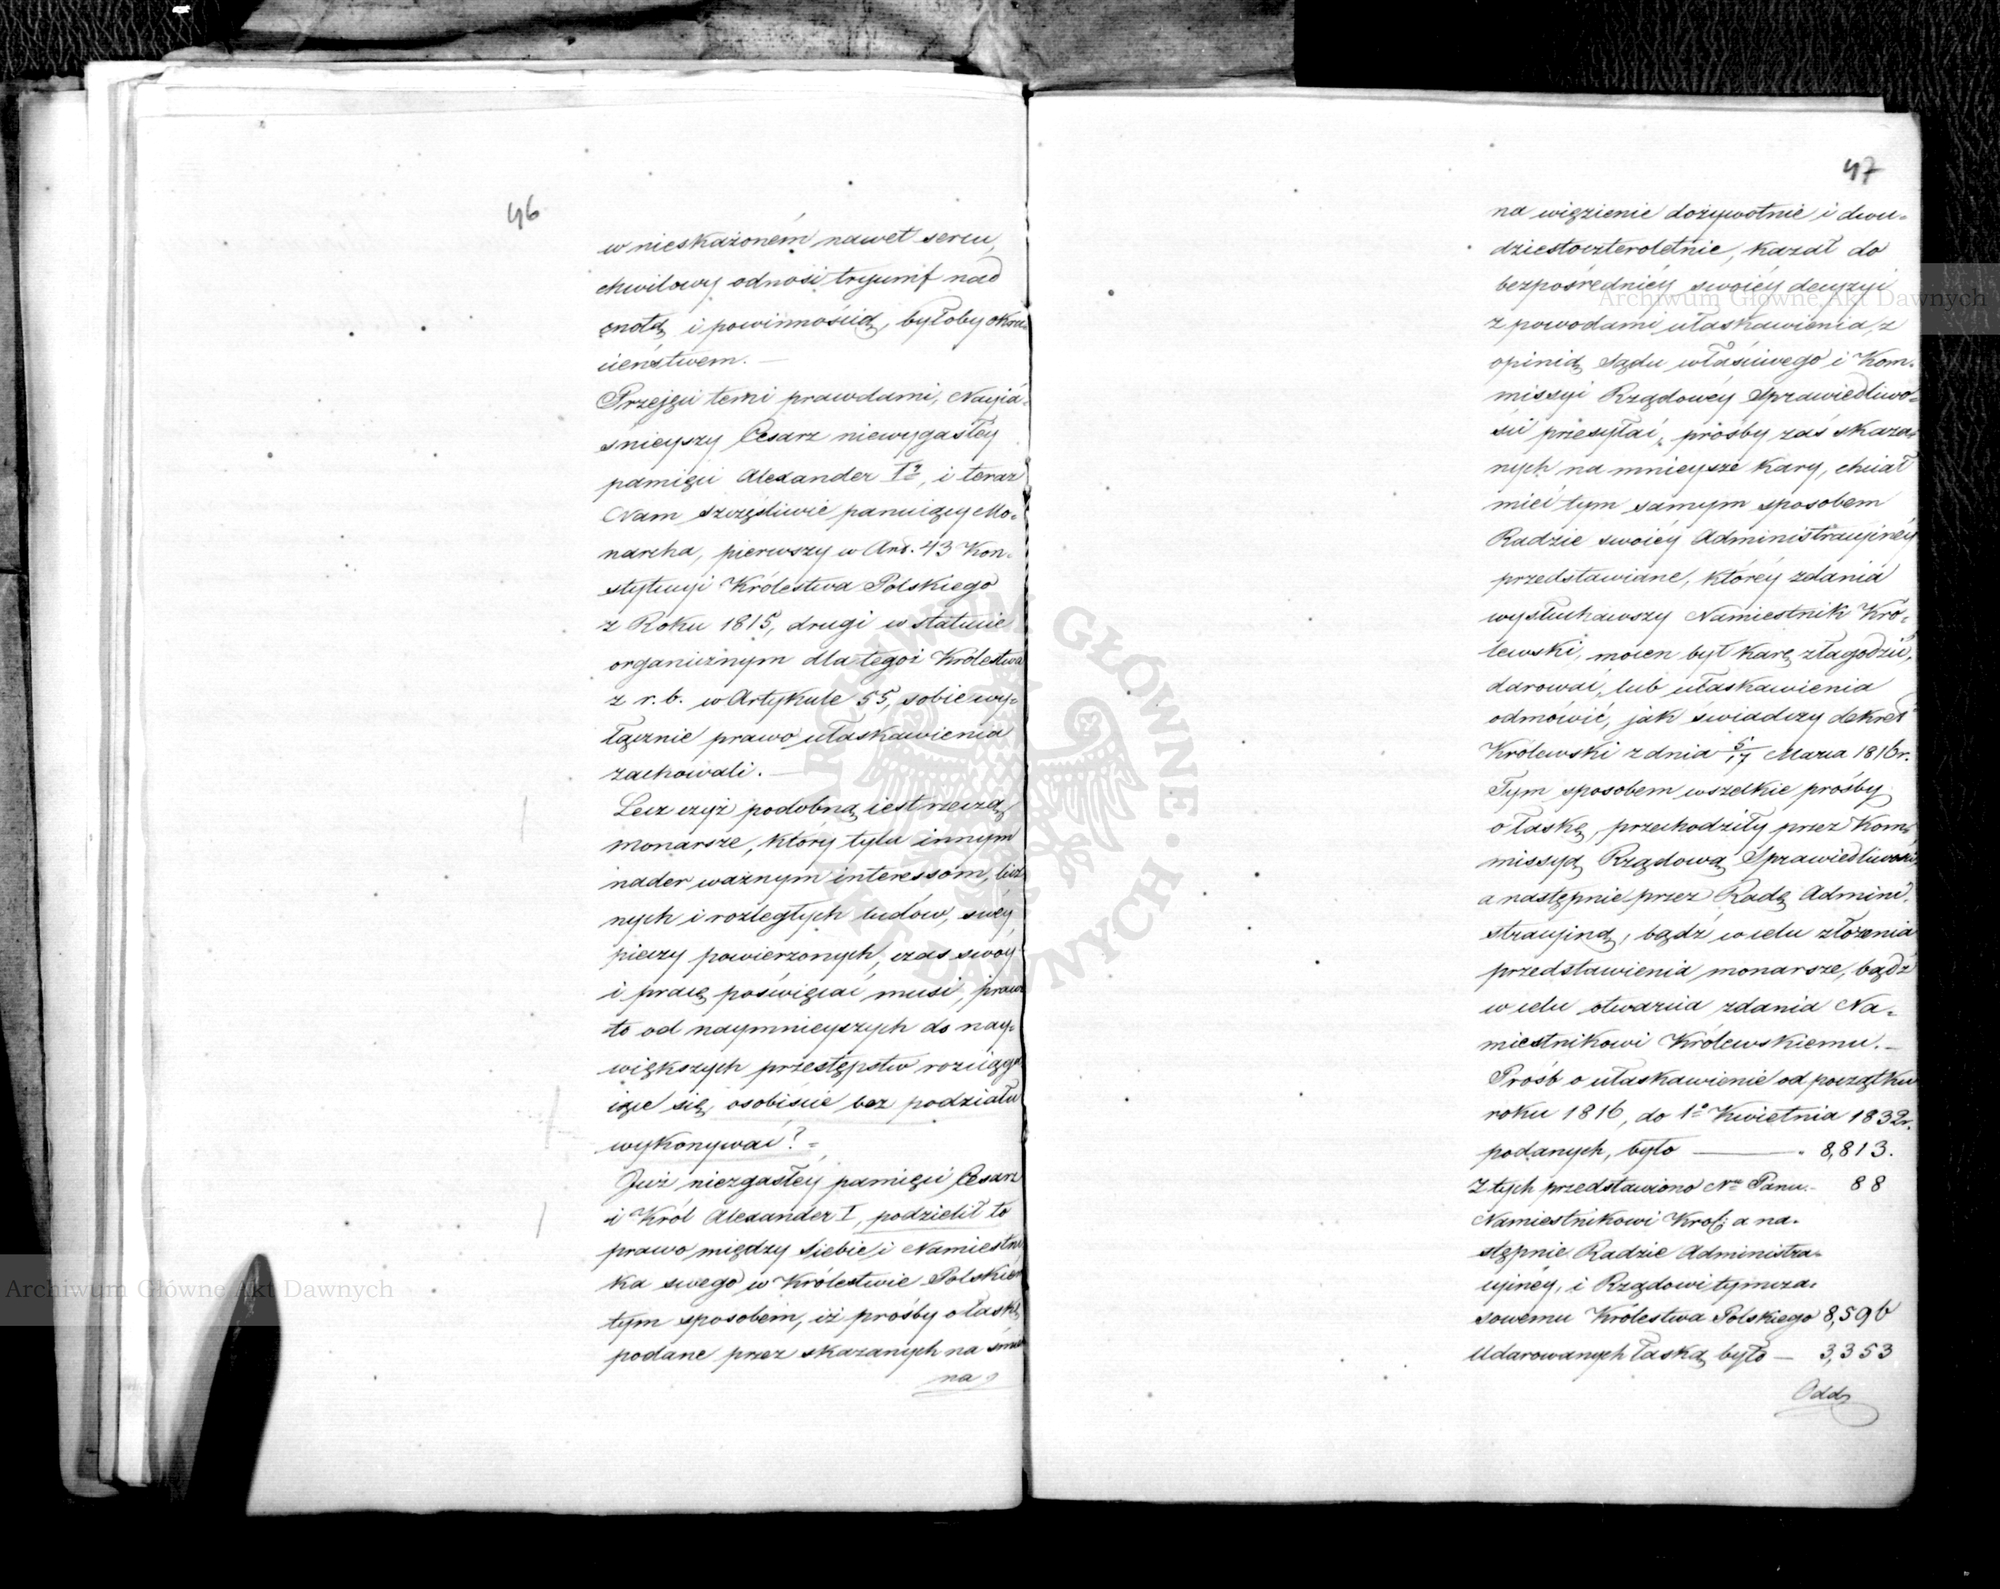 46
w nieskażoném nawet sercu,
chwilowy odnosi tryumf nad
cnotą i powinnością, byłoby okru
cieństwem. —
Przejęci temi prawdami, Nayja-
śnieyszy Cesarz niewygasłey
pamięci Alexander Iº, i teraz
Nam szczęśliwie panuiący Mo-
narcha, pierwszy w Art. 43 Kon-
stytucyi Królestwa Polskiego
z Roku 1815, drugi w statucie
organicznym dla tegoż Królestwa
z r. b. w Artykule 55, sobie wy-
łącznie prawo ułaskawienia
zachowali. —
Lecz czyż podobną iest rzeczą,
monarsze, który tylu innym
nader ważnym interessom, licz
nych i rozległych ludów, swey
pieczy powierzonych, czas swóy
i pracę poświęcać musi, prawo
to od naymnieyszych do nay-
większych przestępstw rozciąga
iące się, osobiście bez podziału
wykonywać? —
Już niezgasłéy pamięci Cesarz
i Król Alexander I, podzielił to
prawo między siebie i Namiestni
ka swego w Królestwie Polskiém
tym sposobem, iż prośby o łaskę
podane przez skazanych na śmierć
na
47
na więzienie dożywotnie i dwu-
dziestoczteroletnie, kazał do
bezpośredniéy swoiéy decyzyi
z powodami ułaskawienia, z
opinią Sądu właściwego i Kom-
missyi Rządowéy Sprawiedliwo-
ści przesyłać, prośby zaś skaza-
nych na mnieysze kary, chciał
mieć tym samym sposobem
Radzie swoiéy Administracyinéy
przedstawiane, któréy zdania
wysłuchawszy Namiestnik Kró-
lewski, mocen był karę złagodzić,
darować, lub ułaskawienia
odmówić, jak świadczy dekret
Królewski z dnia 5/17 Marca 1816 r.
Tym sposobem wszelkie prośby
o łaskę, przechodziły przez Kom-
missyą Rządową Sprawiedliwości
a następnie przez Radę Admini-
stracyiną, bądź w celu złożenia
przedstawienia monarsze, bądź
w celu otwarcia zdania Na-
miestnikowi Królewskiemu. —
Próśb o ułaskawienie od początku
roku 1816, do 1º Kwietnia 1832 r.
podanych, było — 8,813.
Z tych przedstawiono Nu Panu. 88
Namiestnikowi Krol: a na-
stępnie Radzie Administra-
cyinéy, i Rządowi tymcza-
sowemu Królestwa Polskiego 8,596
Udarowanych łaską było — 3,353
Archiwum Główne Akt Dawnych
Archiwum Główne Akt Dawnych
ARCHIWUM GŁÓWNE AKT DAWNYCH